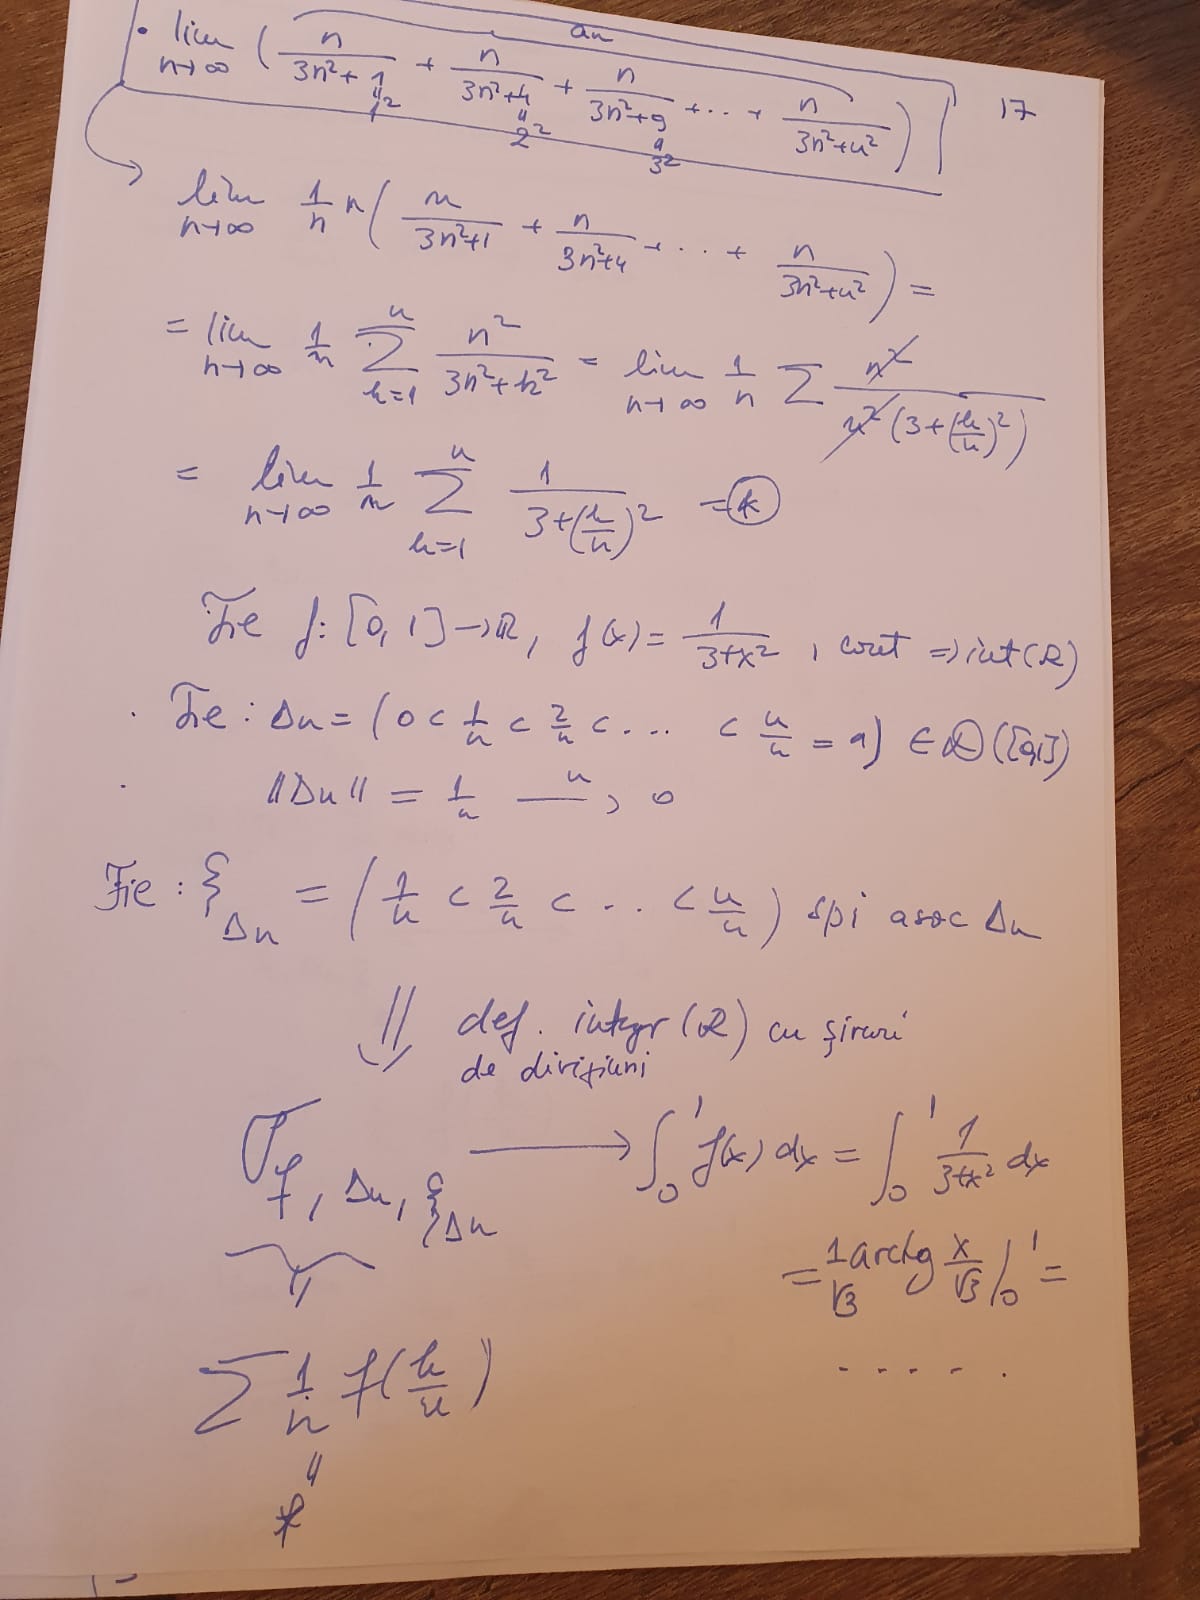 • lim n→∞ ( n/(3n²+1) + n/(3n²+4) + n/(3n²+9) + ... + n/(3n²+n²) ) an
1² 2² 3²
17
lim n→∞ 1/n n ( n/(3n²+1) + n/(3n²+4) + ... + n/(3n²+n²) ) =
= lim n→∞ 1/n Σ k=1 n n²/(3n²+k²) = lim n→∞ 1/n Σ n²/(n²(3+(k/n)²))
= lim n→∞ 1/n Σ k=1 n 1/(3+(k/n)²) = *
Fie f: [0,1]→R, f(x) = 1/(3+x²), cont ⇒ int(R)
Fie: Δn = (0 < 1/n < 2/n < ... < n/n = 1) ∈ D([0,1])
||Δn|| = 1/n —n→ 0
Fie: ξΔn = (1/n < 2/n < ... < n/n) spi asoc Δn
⇓ def. integr (R) cu șiruri
de diviziuni
σ f, Δn, ξΔn → ∫₀¹ f(x) dx = ∫₀¹ 1/(3+x²) dx
= 1/√3 arctg x/√3 |₀¹ =
.....
Σ 1/n f(k/n)
*